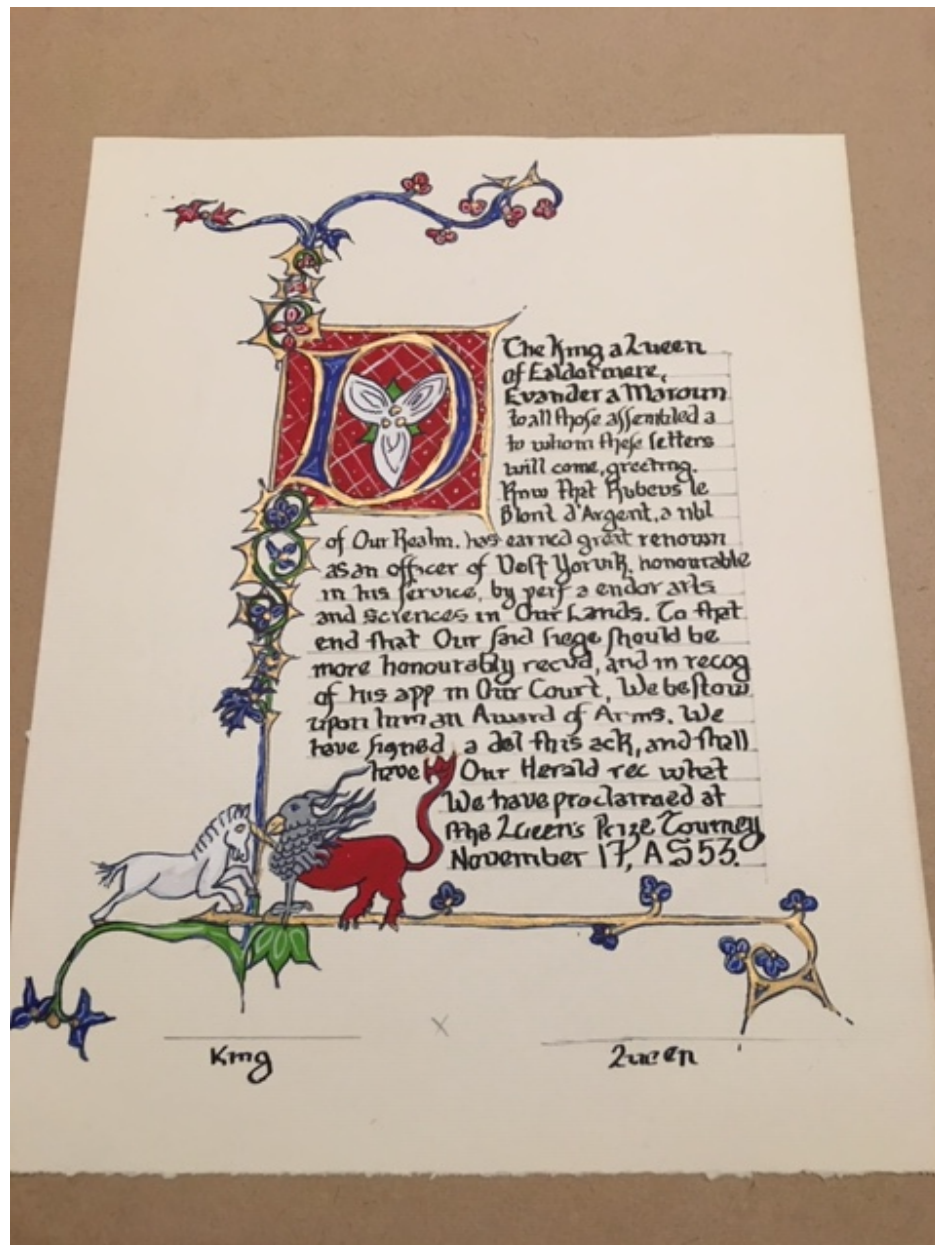 D
The King a Queen
of Ealdormere,
Evander a Maroun
to all those assembled a
to whom these letters
will come, greeting.
Know that Rubeus le
Blont d'Argent, a nbl
of Our Realm. has earned great renown
as an officer of Vest Yorvik, honourable
in his service, by perf a endor arts
and sciences in Our Lands. To that
end that Our said liege should be
more honourably recvd, and in recog
of his app in Our Court, We bestow
upon him an Award of Arms. We
have signed a del this ack, and shall
have Our Herald rec what
We have proclaimed at
the Queen's Prize Tourney
November 17, A S 53.
King
Queen